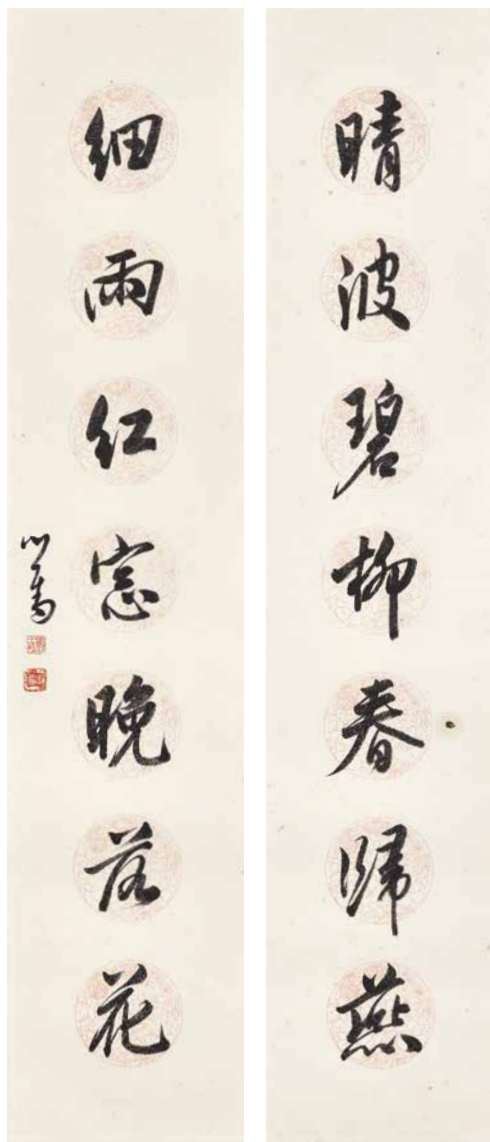 晴波碧柳春歸燕
細雨紅窓晚落花
心畬